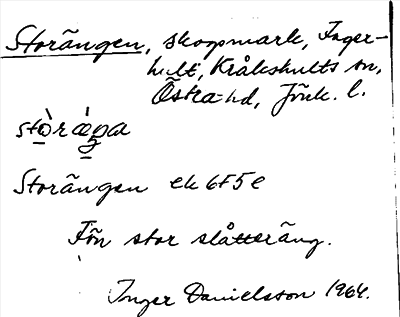 Storängen, skogsmark, Inger-
hult, Kråkshults sn,
Östra hd, Jönk. l.
Storängen ek 6f5e
Förr stor slåtteräng.
Inger Danielsson 1964.